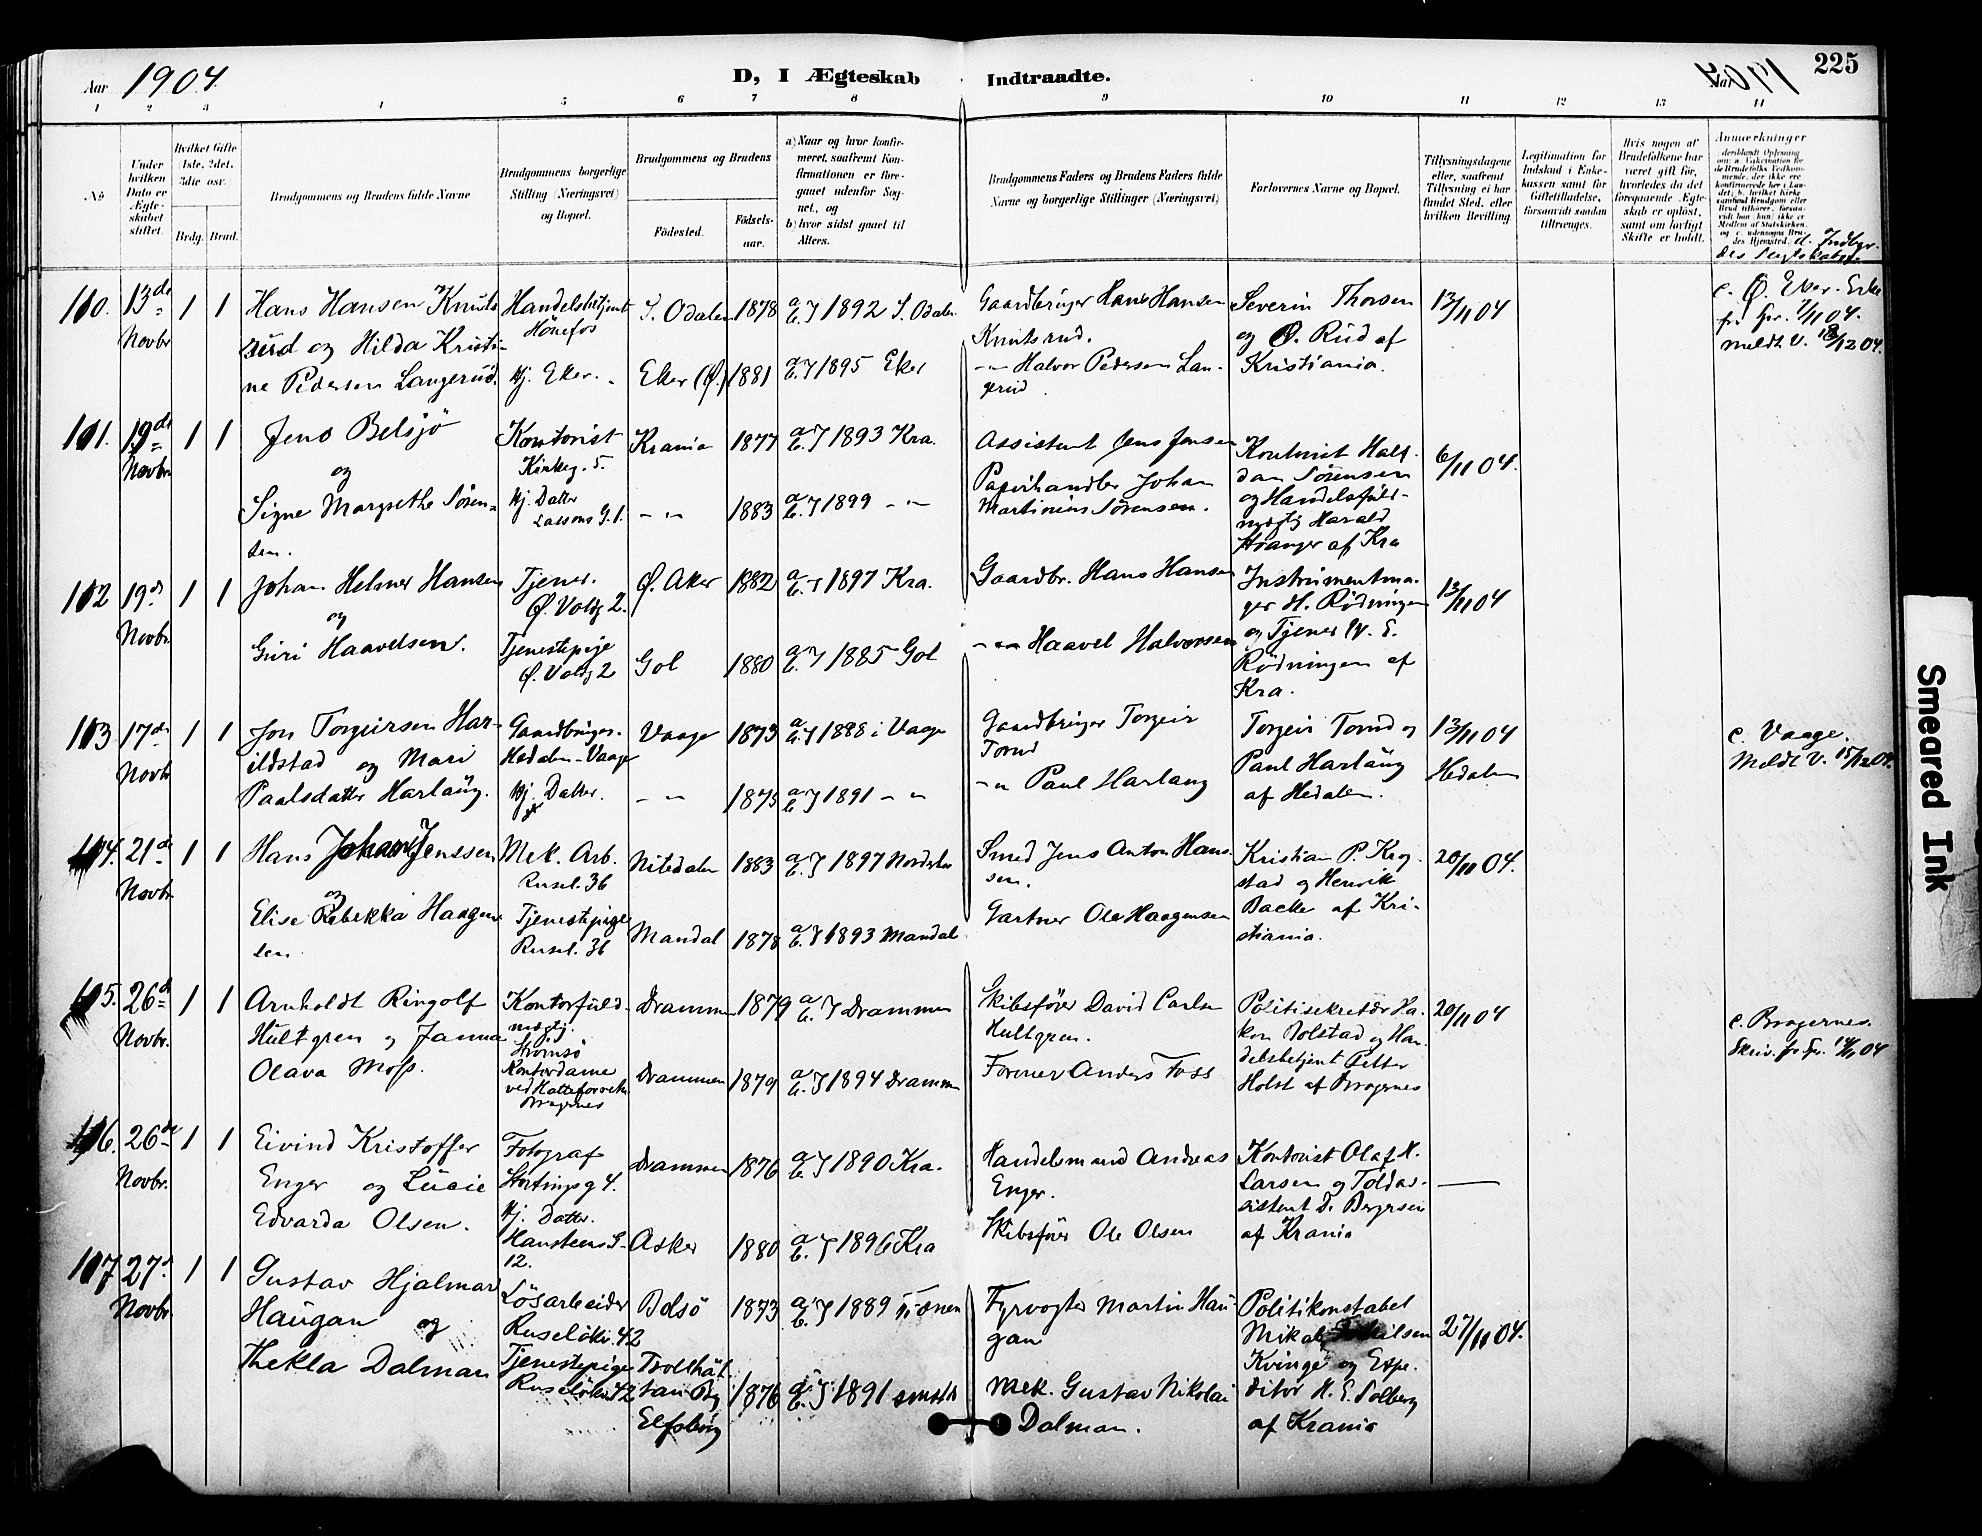 Aar 1904. D, I Ægteskab Indtraadte. Aar 1904 225
1 2 3 4 5 6 7 8 9 10 11 12 13 14
No
Under hvilken Dato er Ægteskabet stiftet.
Hvilket Gifte (1ste, 2det, 3die osv.)
Brdg. Brud.
Brudgommens og Brudens fulde Navne
Brudgommens borgerlige Stilling (Næringsvei) og Bopæl.
Brudgommens og Brudens
Fødested.
Fødselsaar.
a) Naar og hvor konfirmeret, saafremt Konfirmationen er foregaaet udenfor Sognet, og
b) hvor sidst gaaet til Alters.
Brudgommens Faders og Brudens Faders fulde Navne og borgerlige Stillinger (Næringsvei)
Forlovernes Navne og Bopæl.
Tillysningsdagene eller, saafremt Tillysning ei har fundet Sted, efter hvilken Bevilling
Legitimation for Indskud i Enkekassen samt for Giftetilladelse, forsaavidt saadan tiltrænges.
Hvis nogen af Brudefolkene har været gift før, hvorledes da det foregaaende Ægteskab er opløst, samt om lovligt Skifte er holdt.
Anmærkninger
110. 13de Novbr 1 1
Hans Hansen Knuts-
rud og Hilda Kristi-
ne Pedersen Langerud.
Handelsbetjent
Hönefos
Hj. Eker.
S. Odalen 1878 1892 S. Odalen
Eker (Ø) 1881 1895 Eker
Gaardbruger Hans Hansen
Knutsrud.
-"- Halvor Pedersen Lan-
gerud
Severin Thorsen
og O. Rud af
Kristiania.
13/11 04
c. Ø. Eker.
meldt V. 04.
101. 19de Novbr 1 1
Jens Belsjö
og
Signe Margrethe Sören-
sen.
Kontorist
Kirkeg. 5.
Hj. Datter
Krania 1877 1893 Kra.
-"- 1883 1899 -"-
Assistent Jens Jensen
Papirhandler Johan
Martinius Sørensen.
Kontorist Half-
dan Sørensen
og Handelsfuld-
mægtig Harald
Hvanger af Kra
6/11 04.
102 19de Novbr 1 1
Johan Helmer Hansen
og
Guri Haavelsen.
Tjener.
Ø. Voldg 2.
Tjenestepige
Ø. Voldg 2
Ø. Aker 1882 1897 Kra.
Gol 1880 1885 Gol
Gaardbr. Hans Hansen
-"- Haavel Halvorsen
Instrumentma-
ger H. Rødningen
og Tjener N. E.
Rødningen af
Kra.
13/11 04
103 17de Novbr 1 1
Jon Torgeirsen Har-
ildstad og Mari
Paalsdatter Harlaug.
Gaardbruger.
Hedalen - Vaage
Hj. Datter.
Vaage 1873 1888 i Vaage
-"- 1875 1891 -"-
Gaardbruger Torgeir
Tornd
-"- Paul Harlaug
Torgeir Tornd og
Paul Harlaug
af Hedalen.
13/11 04
Hedalen
c. Vaage.
Meldt V. 15/12 04.
104. 21de Novbr 1 1
Hans Johan Jenssen
og
Elise Rebekka Haagen-
sen
Mek. Arb.
Rusel. 36
Tjenestepige
Rusel. 36
Nitedalen 1883 1897
Mandal 1878 1893 Mandal
Smed Jens Anton Han-
sen.
Gartner Ole Haagensen
Kristian P. Krog-
stad og Henrik
Backe af Kri-
stiania.
20/11 04.
105. 26de Novbr. 1 1
Arnholdt Ringolf
Hultgren og Janna
Olava Moss.
Kontorfuld-
mægtig.
Strømsö
Kontordame
Bragernes
Drammen 1879 Drammen
Drammen 1879 1894 Drammen
Skibsfører David Carlsen
Hultgren.
Former Anders Foss
Politisekretær Ha-
kon Bolstad og Han-
delsbetjent Petter
Holst af Bragernes
20/11 04
c. Bragernes.
106. 26de Novbr. 1 1
Eivind Kristoffer
Enger og Lucie
Edvarda Olsen.
Fotograf
Stortingsg 4.
Hj. Datter.
Hansteens G.
12.
Drammen 1876 1890 Kra.
Asker 1880 1896 Kra
Handelsmand Andreas
Enger.
Skibsfører Ole Olsen
Kontorist Olaf H.
Larsen og Toldas-
sistent D. Bergersen
af Krania
107 27de Novbr. 1 1
Gustav Hjalmar
Haugan og
Thekla Dalman
Løsarbeider
Ruseløkv. 42
Tjenestepige
Ruseløkv. 42
Bolsö 1873 1889
Trolhät-
tan
Elfsborg 1876 1891
Fyrvogter Martin Hau-
gan
Mek. Gustav Nikolai
Dalman.
Politikonstabel
Mikal
Kvinge og Expe-
ditör H. E. Solberg
af Krania
27/11 04.
Smeared Ink